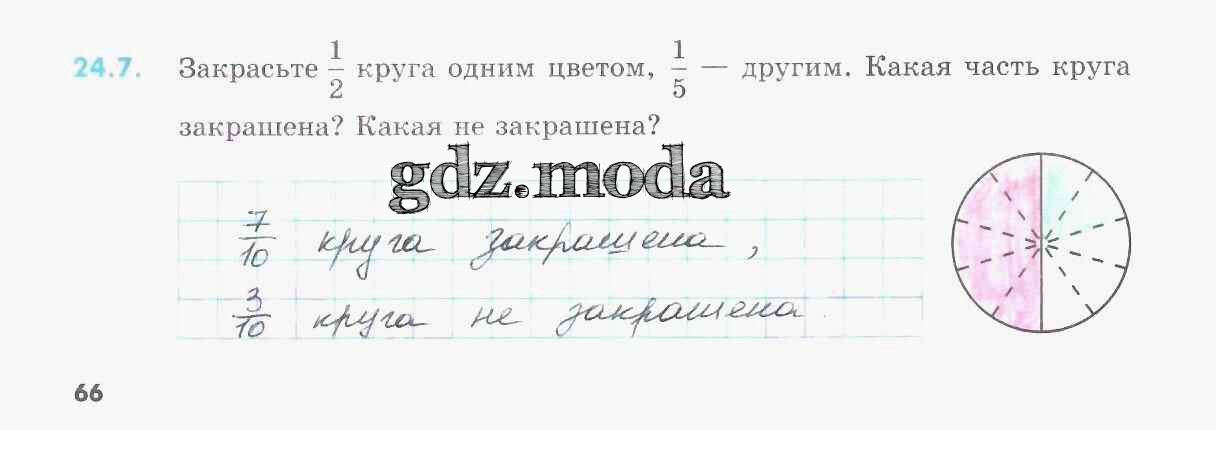 24.7. Закрасьте 1/2 круга одним цветом, 1/5 — другим. Какая часть круга
закрашена? Какая не закрашена?
gdz.moda
7/10 круга закрашена,
3/10 круга не закрашена.
66